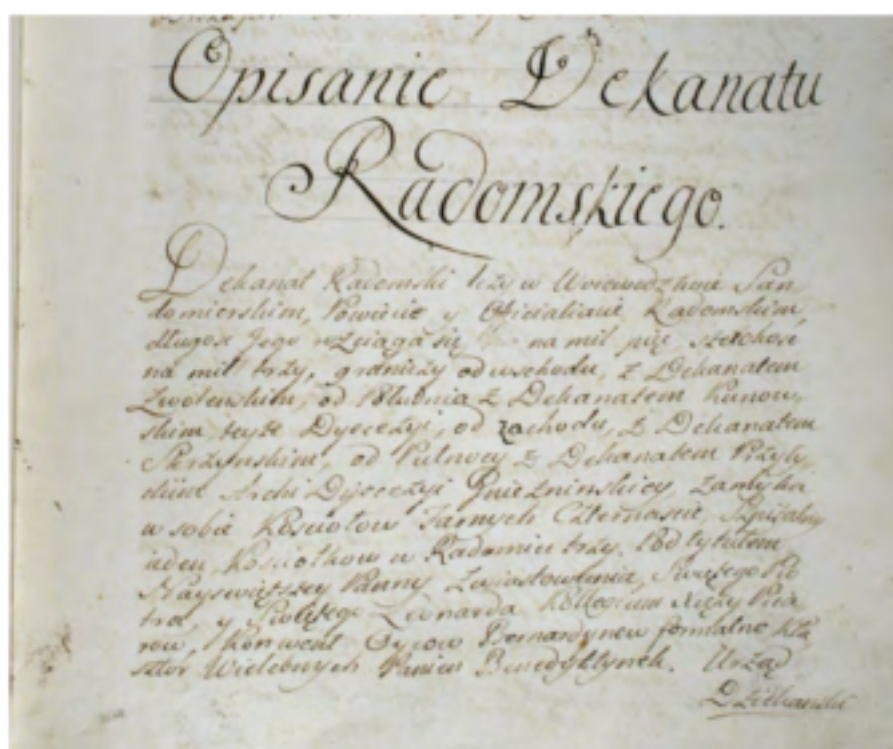 Opisanie Dekanatu
Radomskiego.
Dekanat Radomski leży w Woiewodztwie San
domierskim, Powiecie y Oficialacie Radomskim,
długość Jego rozciąga się na mil pięć, szerkość
na mil trzy, graniczy od wschodu, z Dekanatem
Zwolenskim, od Południa z Dekanatem Kunow,
skim teyże Dyecezyi, od zachodu, z Dekanatem
od Pułnocy z Dekanatem Przyty,
ckim Archi Dyecezyi Gnieźninskiey, zamyka
w sobie Kościołow Farnych Czternaście, Szpitalny
ieden, Kościołkow w Radomiu trzy. Pod tytułem
Nayswiętszey Panny Zwiastowania, Swiętego Pio
tra, y Swiętego Leonarda Kollegium Xięży Pija
row, Konwent Oycow Bernardynow formalne Kla
sztor Wielebnych Panien Benedyktynek. Urząd